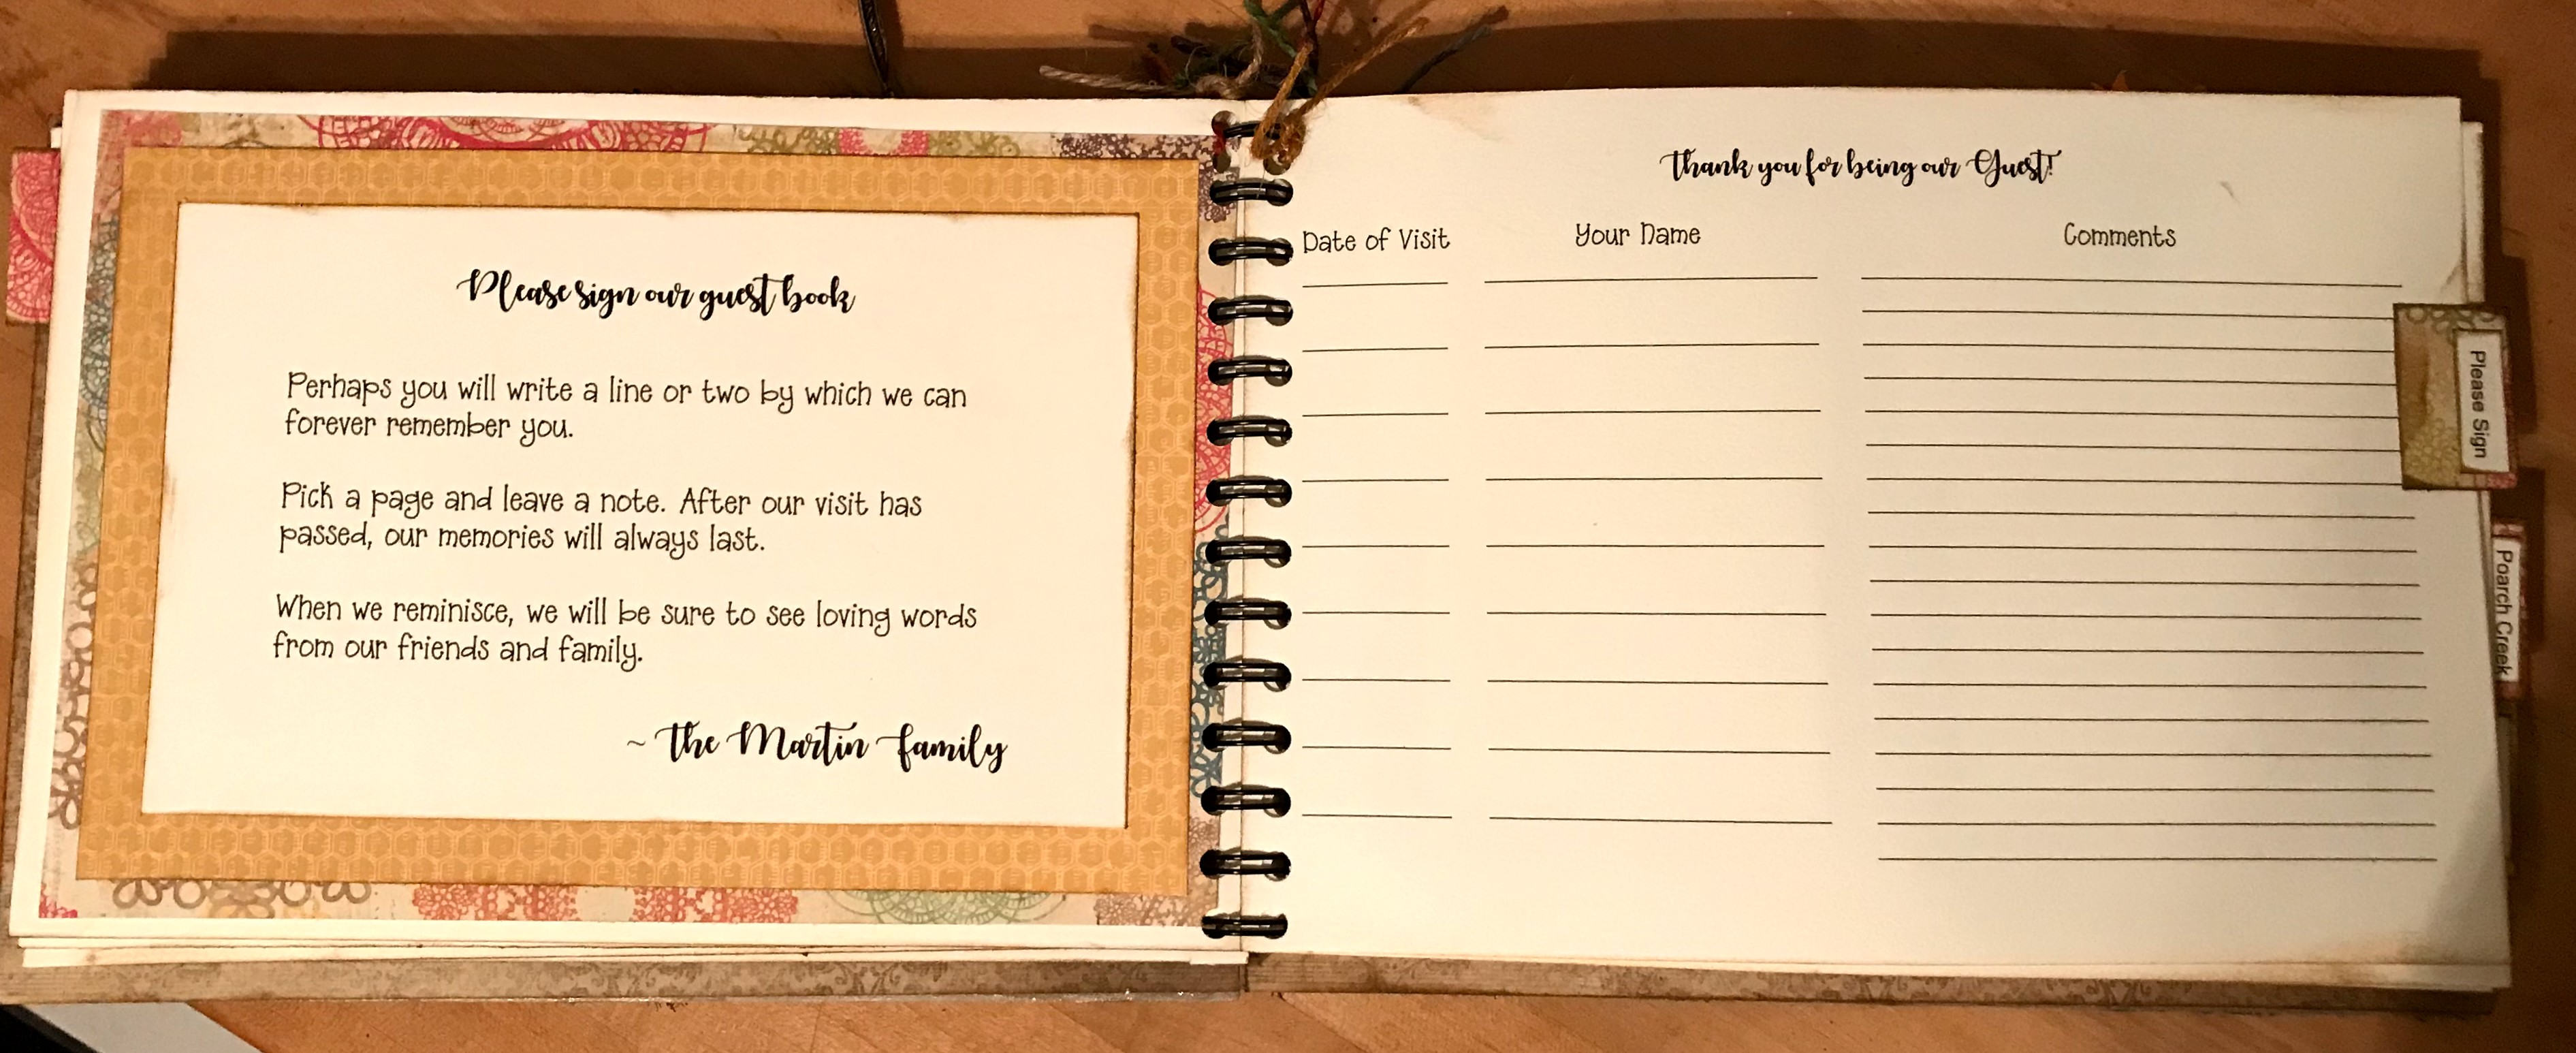 Please sign our guest book
Perhaps you will write a line or two by which we can
forever remember you.
Pick a page and leave a note. After our visit has
passed, our memories will always last.
When we reminisce, we will be sure to see loving words
from our friends and family.
~ The Martin Family
Thank you for being our Guest!
Date of Visit
Your Name
Comments
Please Sign
Poarch Creek